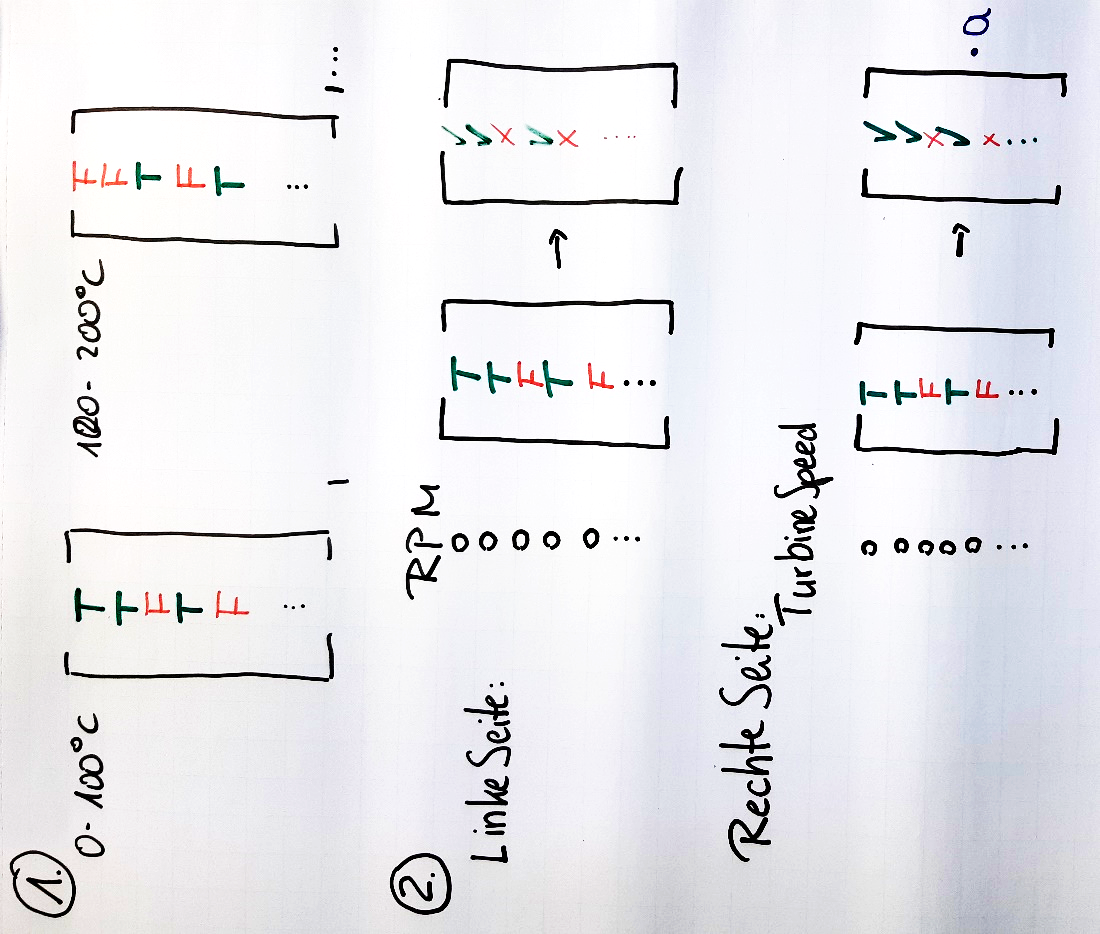 1.
0-100°C
[T T F T F ...] ,
100-200°C
[F F T F T ...] , ...
2.
Linke Seite:
RPM
o o o o o ... [T T F T F ...] → [✓ ✓ x ✓ x ....]
Rechte Seite:
Turbine Speed
o o o o o ... [T T F T F ...] → [✓ ✓ x ✓ x ...] · a